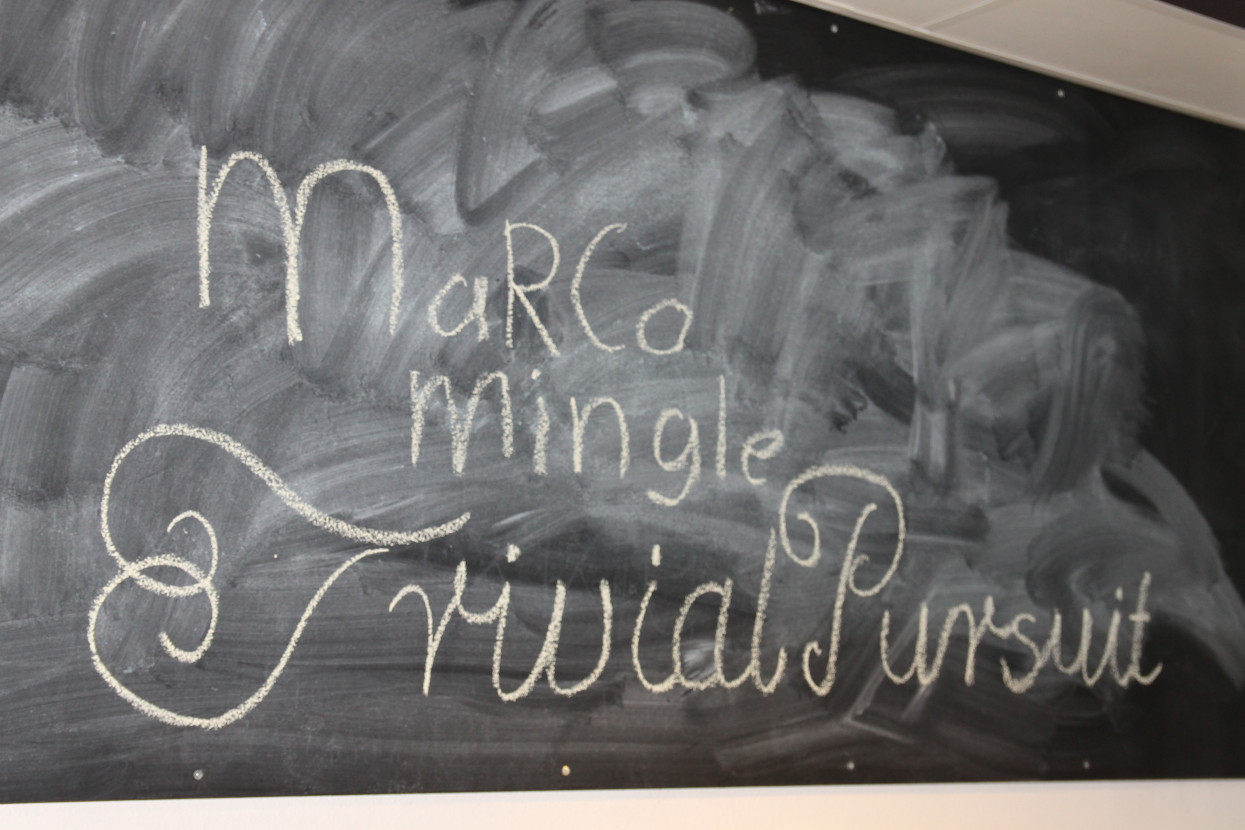 MaRCo
mingle
Trivial Pursuit